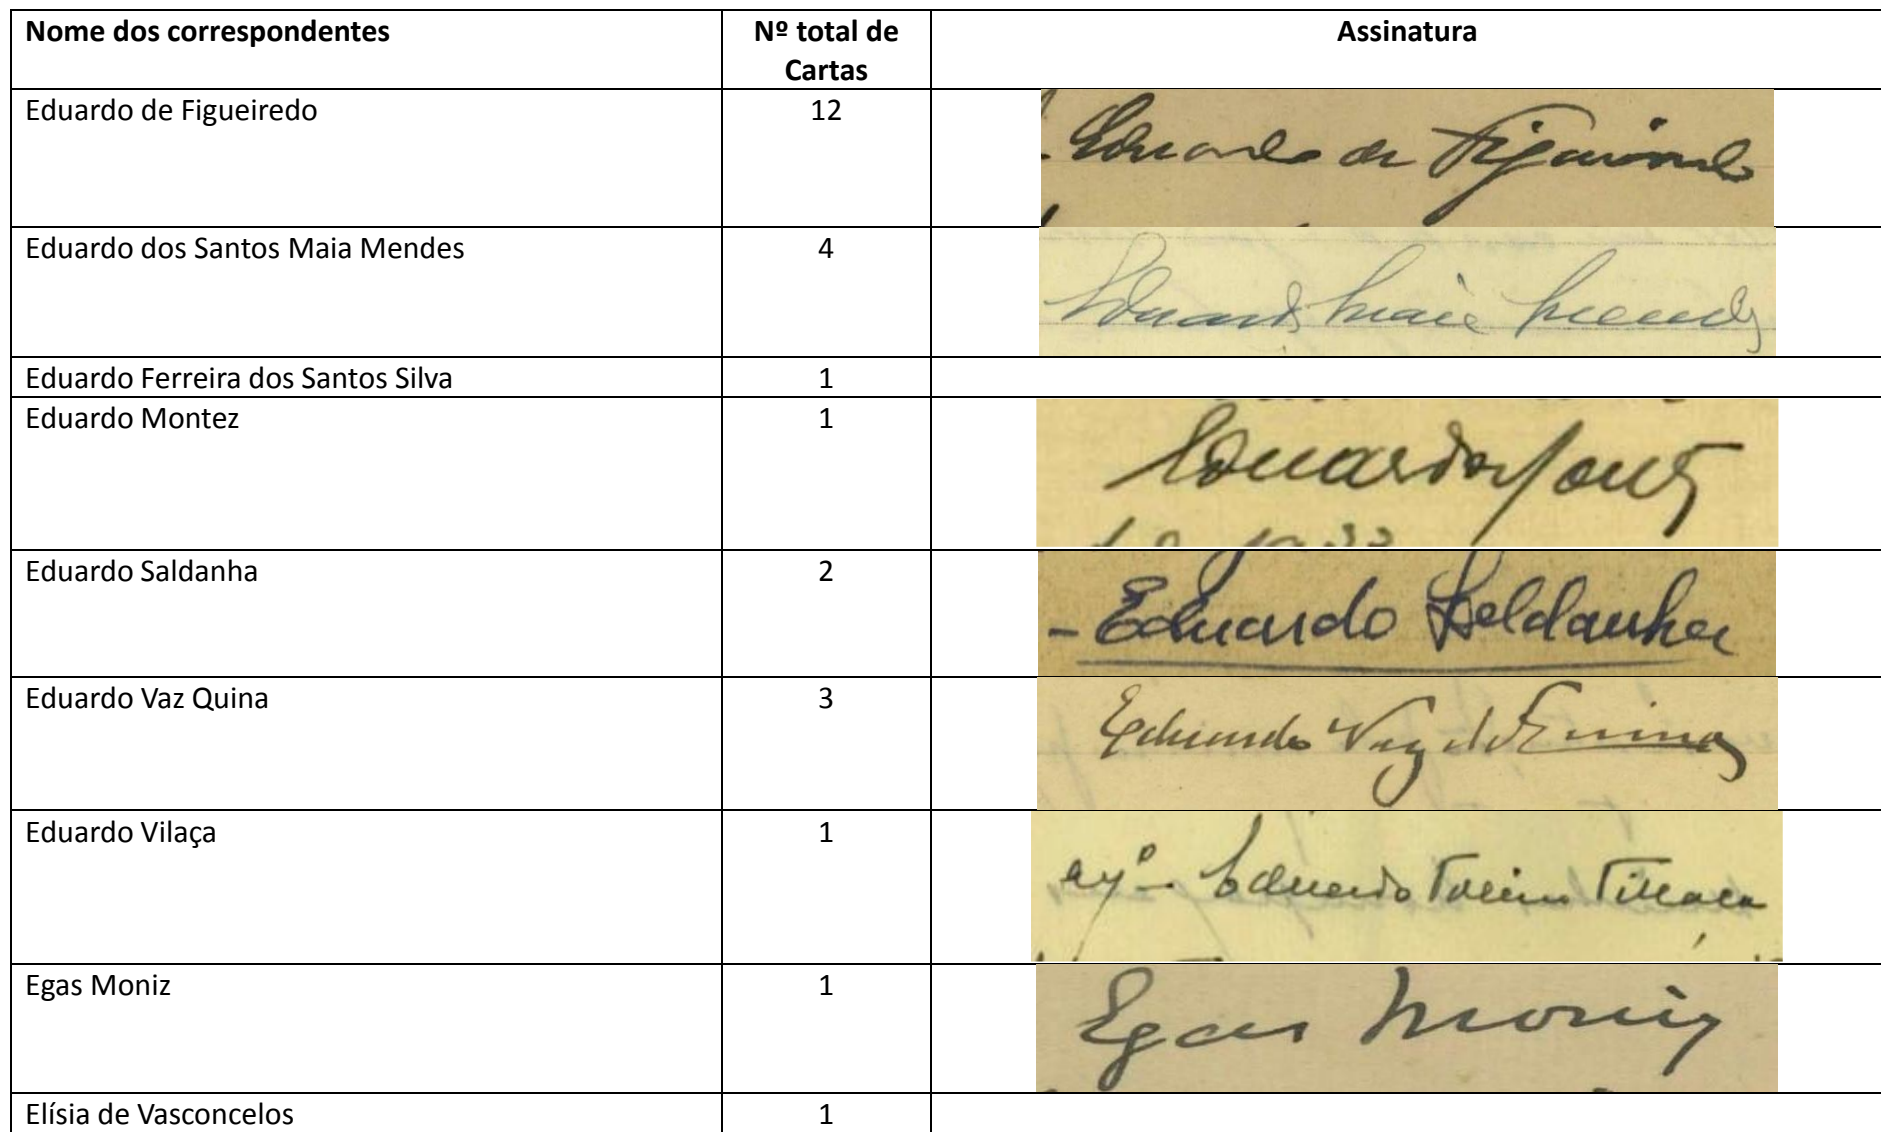 Nome dos correspondentes Nº total de Cartas Assinatura
Eduardo de Figueiredo 12 Eduardo de Figueiredo
Eduardo dos Santos Maia Mendes 4 Eduardo Maia Mendes
Eduardo Ferreira dos Santos Silva 1
Eduardo Montez 1 Eduardo Montez
Eduardo Saldanha 2 - Eduardo Saldanha
Eduardo Vaz Quina 3 Eduardo Vaz de Quina
Eduardo Vilaça 1 Eduardo Vilaça
Egas Moniz 1 Egas Moniz
Elísia de Vasconcelos 1